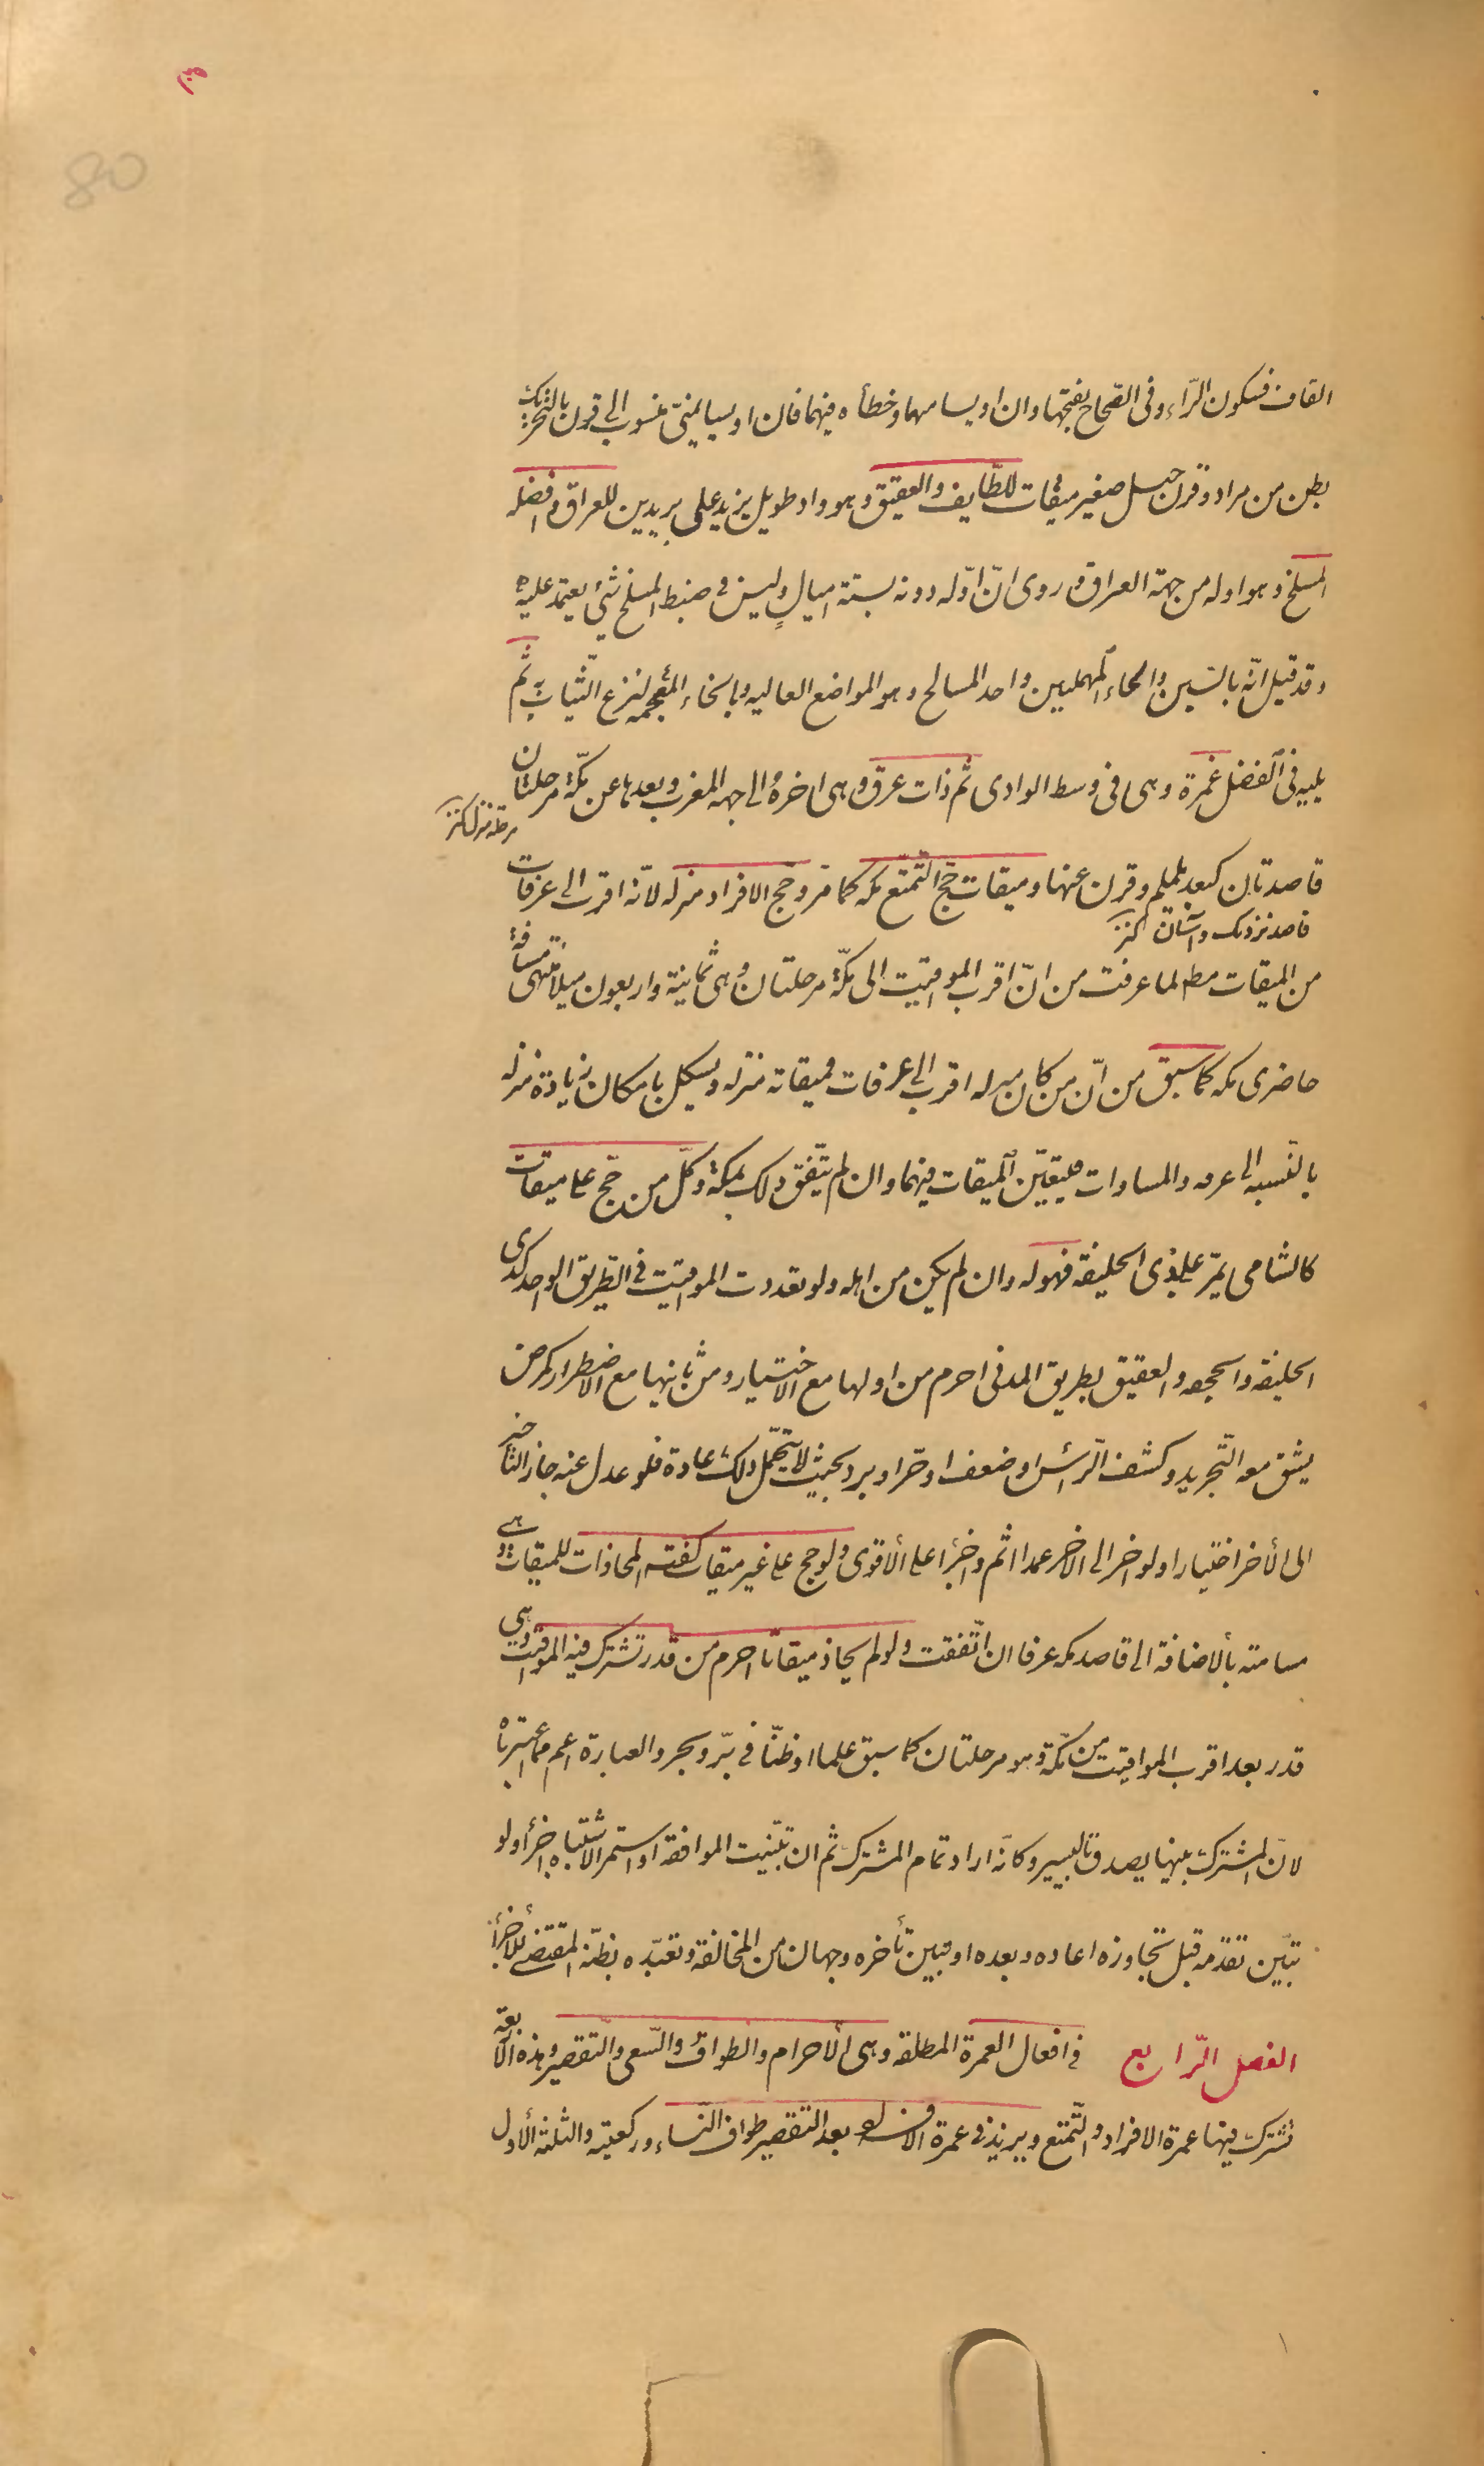 القاف فسكون الرّاء وفى الصّحاح بفتحها وان اويسا منها وخطأه فيهما فان اويسا يمنىّ منسوب الى قرن بالتّحريك
بطن من مراد وقرن جبل صغير ميقات للطّايف والعقيق وهو واد طويل يزيد على بريدين للعراق وافضله
المسلخ وهو اوله من جهة العراق وروى انّ اوّله دونه بستة اميالٍ وليس فى ضبط المسلخ شئ يعتمد عليه
وقد قيل انّه بالسّين والحاء المهملتين واحد المسالح وهو المواضع العاليه وبالخاء المعجمه لنزع الثّياب به ثمّ
يليه فى الفضل غمرة وهى فى وسط الوادى ثم ذات عرق وهى اخره الى جهه المغرب وبعدها عن مكّة مرحلتان
مرحله منزل كنز
قاصدتان كبعد يلملم وقرن عنها وميقات حجّ التّمتع مكه كما مرّ وحج الافراد منزله لانّه اقرب الى عرفات
قاصد نزديك وآسان كنز
من الميقات مطلقا لما عرفت من انّ اقرب المواقيت الى مكّة مرحلتان وهى ثمانية واربعون ميلا منتهى مسافة
حاضرى مكه كما سبق من انّ من كان منزله اقرب الى عرفات فميقاته منزله ويشكل بامكان زيادة منزله
بالنّسبه الى عرفه والمساوات فيتعيّن الميقات فيهما وان لم يتّفق ذلك بمكّة وكلّ من حج على ميقات
كالشامى يمرّ على ذى الحليفه فهو له وان لم يكن من اهله ولو تعددت المواقيت فى الطريق الواحد كذى
الحليفه والجحفه والعقيق بطريق المدنى احرم من اولها مع الاختيار ومن ثانيها مع الاضطرار كمرض
يشق معه التّجريد وكشف الرّأس او ضعف او حرّ او برد بحيث لا يتحمّل ذلك عادة فلو عدل عنه جاز التّأخير
الى الأخر اختيارا ولو اخر الى الاخر عمدا اثم واجزأ على الأقوى ولو حج على غير ميقات كفته المحاذات للميقات وهى
مسامتته بألاضافة الى قاصد مكه عرفا ان اتّفقت ولو لم يحاذ ميقاتا احرم من قدر تشترك فيه المواقيت وهى
قدر بعد اقرب المواقيت من مكّة وهو مرحلتان كما سبق علما او ظنّا فى برّ وبحر والعبارة اعم مما اعتبرناه
لانّ المشترك بينها يصدق باليسير وكانّه اراد تمام المشترك ثم ان تبيّنت الموافقة او استمر الاشتباه اجزأ ولو
تبيّن تقدّمه قبل تجاوزه اعاده وبعده او تبيّن تأخره وجهان من المخالفة وتعبّده بظنّه المقتضى للأجزأ
الفصل الرّابع فى افعال العمرة المطلقه وهى الأحرام والطواف والسّعى والتّقصير وهذه الأربعة
تشترك فيها عمرة الافراد والتّمتع ويزيد فى عمرة الافراد بعد التقصير طواف النّساء وركعتيه والثلثة الأول